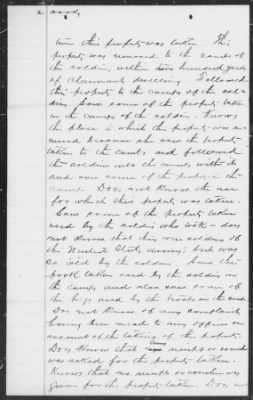 time this property was taken. This
property was removed to the camps of
the soldiers within two hundred yards
of Claimants dwelling. Followed
this property to the camps of the sol-
diers. Saw some of the property take
in the camps of the soldiers. Knows
the place to which this property was re-
moved because she saw the property
taken to the camps and followed
the soldiers into the camps with it
and saw some of the property in the
camps. Does not know the use
for which this property was taken.
Saw some of the property taken
used by the soldiers who took - does
not know that they were soldiers of
the United States army, but was
so told by the soldiers. Saw the
pork taken used by the soldiers in
the camps and also saw some of
the hogs used by the troops in the camps
Does not know of any complaint
having been made to any officer on
account of the taking of the property.
Does know that no receipt or voucher
was asked for the property taken.
Knows that no receipt or voucher was
given for the property taken. Does not